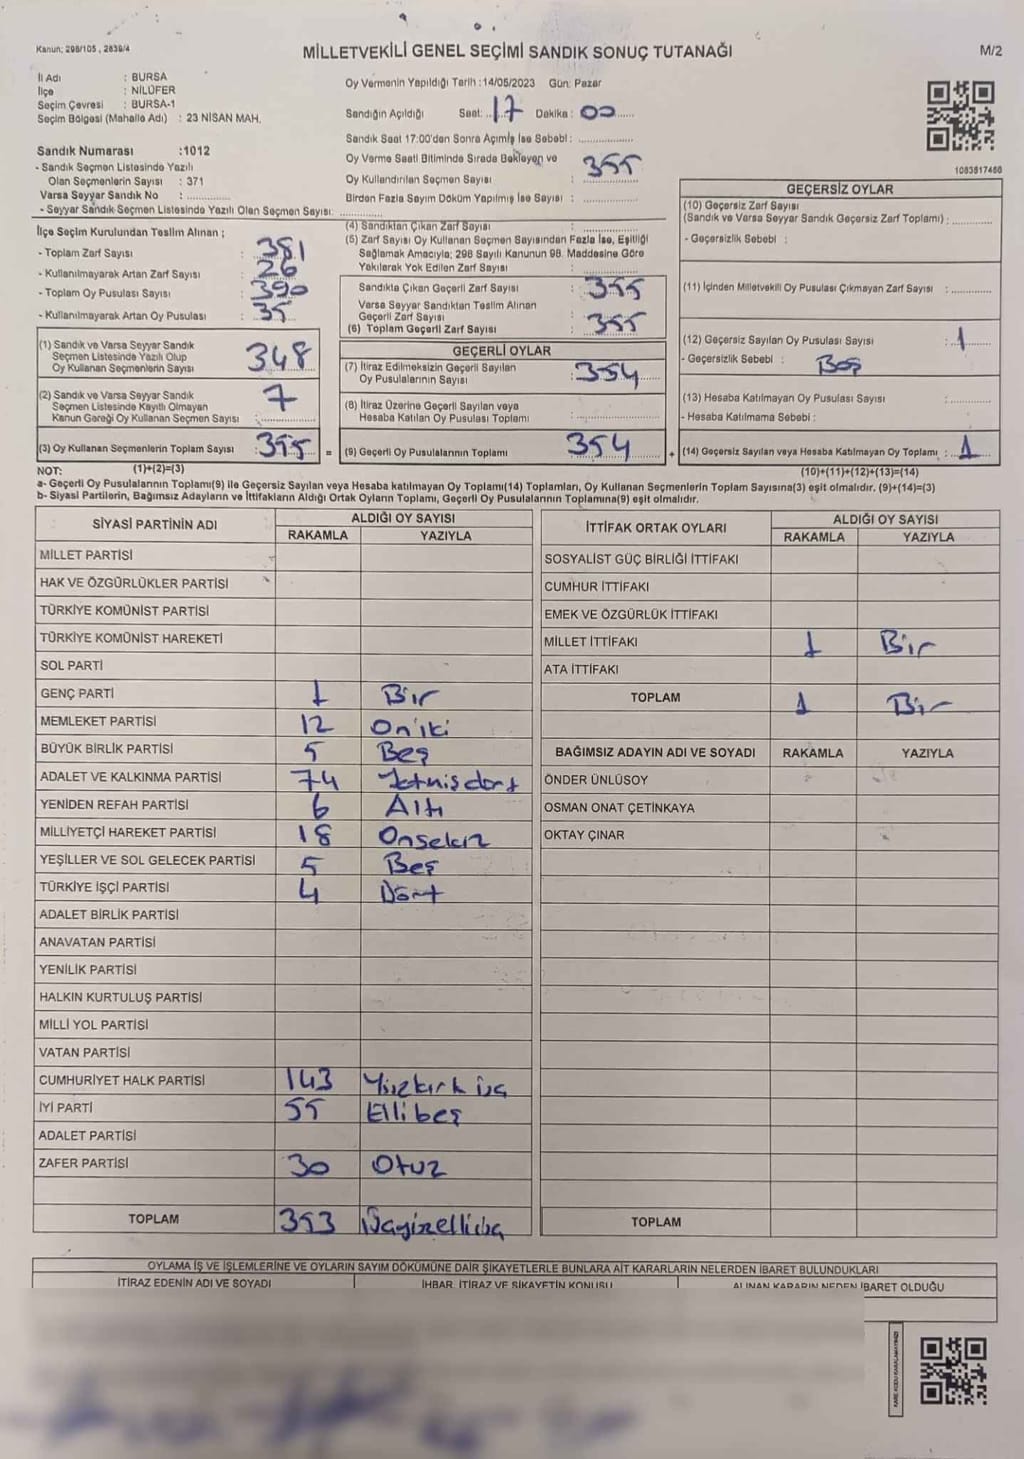 Kanun: 298/105 , 2839/4
MİLLETVEKİLİ GENEL SEÇİMİ SANDIK SONUÇ TUTANAĞI
M/2
İl Adı : BURSA
İlçe : NİLÜFER
Seçim Çevresi : BURSA-1
Seçim Bölgesi (Mahalle Adı) : 23 NİSAN MAH.
Sandık Numarası :1012
- Sandık Seçmen Listesinde Yazılı
Olan Seçmenlerin Sayısı : 371
Varsa Seyyar Sandık No :
- Seyyar Sandık Seçmen Listesinde Yazılı Olan Seçmen Sayısı:
Oy Vermenin Yapıldığı Tarih :14/05/2023 Gün: Pazar
Sandığın Açıldığı Saat: 17 Dakika : 00
Sandık Saat 17:00'den Sonra Açılmış İse Sebebi :
Oy Verme Saati Bitiminde Sırada Bekleyen ve
Oy Kullandırılan Seçmen Sayısı : 355
Birden Fazla Sayım Döküm Yapılmış İse Sayısı :
1083817480
İlçe Seçim Kurulundan Teslim Alınan ;
- Toplam Zarf Sayısı : 381
- Kullanılmayarak Artan Zarf Sayısı : 26
- Toplam Oy Pusulası Sayısı : 390
- Kullanılmayarak Artan Oy Pusulası : 35
(1) Sandık ve Varsa Seyyar Sandık
Seçmen Listesinde Yazılı Olup
Oy Kullanan Seçmenlerin Sayısı : 348
(2) Sandık ve Varsa Seyyar Sandık
Seçmen Listesinde Kayıtlı Olmayan
Kanun Gereği Oy Kullanan Seçmen Sayısı : 7
(3) Oy Kullanan Seçmenlerin Toplam Sayısı : 355 =
(1)+(2)=(3)
(4) Sandıktan Çıkan Zarf Sayısı :
(5) Zarf Sayısı Oy Kullanan Seçmen Sayısından Fazla İse, Eşitliği
Sağlamak Amacıyla; 298 Sayılı Kanunun 98. Maddesine Göre
Yakılarak Yok Edilen Zarf Sayısı :
Sandıkta Çıkan Geçerli Zarf Sayısı : 355
Varsa Seyyar Sandıktan Teslim Alınan
Geçerli Zarf Sayısı :
(6) Toplam Geçerli Zarf Sayısı : 355
GEÇERLİ OYLAR
(7) İtiraz Edilmeksizin Geçerli Sayılan
Oy Pusulalarının Sayısı : 354
(8) İtiraz Üzerine Geçerli Sayılan veya
Hesaba Katılan Oy Pusulası Toplamı :
(9) Geçerli Oy Pusulalarının Toplamı : 354 +
GEÇERSİZ OYLAR
(10) Geçersiz Zarf Sayısı
(Sandık ve Varsa Seyyar Sandık Geçersiz Zarf Toplamı) :
- Geçersizlik Sebebi :
(11) İçinden Milletvekili Oy Pusulası Çıkmayan Zarf Sayısı :
(12) Geçersiz Sayılan Oy Pusulası Sayısı : 1
- Geçersizlik Sebebi : Boş
(13) Hesaba Katılmayan Oy Pusulası Sayısı :
- Hesaba Katılmama Sebebi :
(14) Geçersiz Sayılan veya Hesaba Katılmayan Oy Toplamı : 1
(10)+(11)+(12)+(13)=(14)
NOT:
a- Geçerli Oy Pusulalarının Toplamı(9) ile Geçersiz Sayılan veya Hesaba katılmayan Oy Toplamı(14) Toplamları, Oy Kullanan Seçmenlerin Toplam Sayısına(3) eşit olmalıdır. (9)+(14)=(3)
b- Siyasi Partilerin, Bağımsız Adayların ve İttifakların Aldığı Ortak Oyların Toplamı, Geçerli Oy Pusulalarının Toplamına(9) eşit olmalıdır.
SİYASİ PARTİNİN ADI ALDIĞI OY SAYISI
RAKAMLA YAZIYLA
MİLLET PARTİSİ
HAK VE ÖZGÜRLÜKLER PARTİSİ
TÜRKİYE KOMÜNİST PARTİSİ
TÜRKİYE KOMÜNİST HAREKETİ
SOL PARTİ
GENÇ PARTİ 1 Bir
MEMLEKET PARTİSİ 12 On iki
BÜYÜK BİRLİK PARTİSİ 5 Beş
ADALET VE KALKINMA PARTİSİ 74 Yetmişdört
YENİDEN REFAH PARTİSİ 6 Altı
MİLLİYETÇİ HAREKET PARTİSİ 18 Onsekiz
YEŞİLLER VE SOL GELECEK PARTİSİ 5 Beş
TÜRKİYE İŞÇİ PARTİSİ 4 Dört
ADALET BİRLİK PARTİSİ
ANAVATAN PARTİSİ
YENİLİK PARTİSİ
HALKIN KURTULUŞ PARTİSİ
MİLLİ YOL PARTİSİ
VATAN PARTİSİ
CUMHURİYET HALK PARTİSİ 143 Yüzkırk üç
İYİ PARTİ 55 Elli beş
ADALET PARTİSİ
ZAFER PARTİSİ 30 Otuz
TOPLAM 353
İTTİFAK ORTAK OYLARI ALDIĞI OY SAYISI
RAKAMLA YAZIYLA
SOSYALİST GÜÇ BİRLİĞİ İTTİFAKI
CUMHUR İTTİFAKI
EMEK VE ÖZGÜRLÜK İTTİFAKI
MİLLET İTTİFAKI 1 Bir
ATA İTTİFAKI
TOPLAM 1 Bir
BAĞIMSIZ ADAYIN ADI VE SOYADI RAKAMLA YAZIYLA
ÖNDER ÜNLÜSOY
OSMAN ONAT ÇETİNKAYA
OKTAY ÇINAR
TOPLAM
OYLAMA İŞ VE İŞLEMLERİNE VE OYLARIN SAYIM DÖKÜMÜNE DAİR ŞİKAYETLERLE BUNLARA AİT KARARLARIN NELERDEN İBARET BULUNDUKLARI
İTİRAZ EDENİN ADI VE SOYADI İHBAR, İTİRAZ VE ŞİKAYETİN KONUSU ALINAN KARARIN NEDEN İBARET OLDUĞU